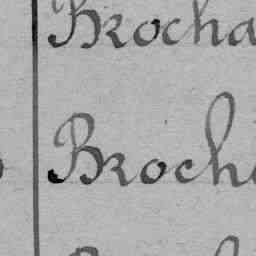 Brocha
Broch